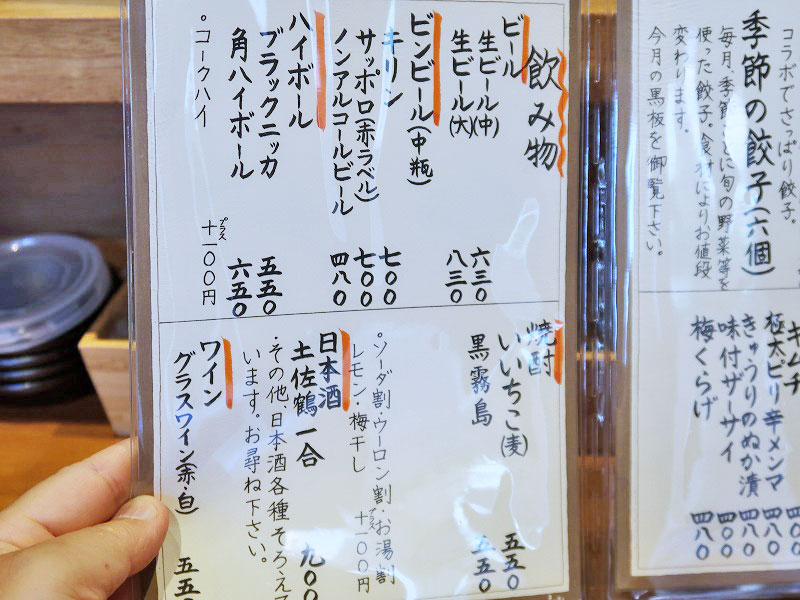 コラボでさっぱり餃子。
季節の餃子(六個)
毎月、季節ごとに旬の野菜等を
使った餃子。食材によりお値段
変わります。
今月の黒板を御覧下さい。
キムチ 四八〇
極太ピリ辛メンマ 四八〇
きゅうりのぬか漬 四八〇
味付ザーサイ 四〇〇
梅くらげ 四八〇
飲み物
ビール
生ビール(中) 六三〇
生ビール(大) 八三〇
ビンビール(中瓶)
キリン 七〇〇
サッポロ(赤ラベル) 七〇〇
ノンアルコールビール 四八〇
ハイボール
ブラックニッカ 五五〇
角ハイボール 六五〇
。コークハイ プラス十一〇〇円
焼酎
いいちこ(麦) 五五〇
黒霧島 五五〇
。ソーダ割・ウーロン割・お湯割
レモン・梅干し プラス十一〇〇円
日本酒
土佐鶴 一合 九〇〇
・その他、日本酒各種そろえて
います。お尋ね下さい。
ワイン
グラスワイン(赤・白) 五五〇